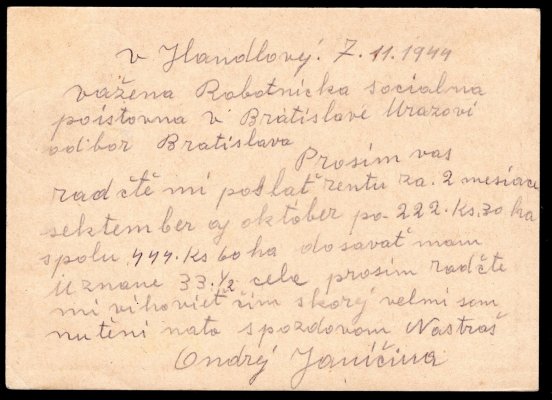 v Handlovej. 7.11.1944
vážena Robotnicka socialna
poistovna v Bratislave Urazovi
odbor Bratislava
Prosim vas
radčtě mi poslať rentu za. 2 mesiace
sektember aj október po 222. Ks. 30 ha
spolu 444. Ks 60 ha dosavať mam
Uznane 33. 1/2 cela prosim radčte
mi vihovieť čim skorej velmi som
nuteni nato s pozdovom Nastraš
Ondrej Janičina